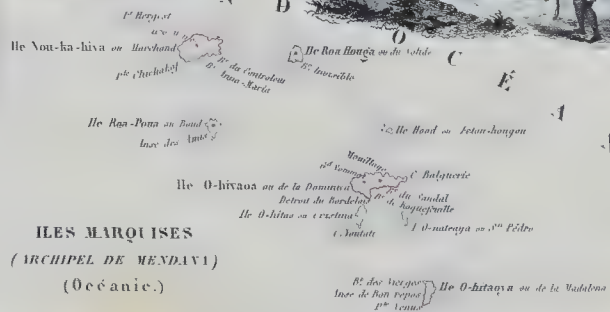 D
O
C
É
A
Ile Nou-ka-hiva ou Marchand
Pte Chichakof
Bie du Controleur
Bie Anna-Maria
Ile Roa Houga ou du Solide
Bie Invisible
Ile Roa-Poua ou
Anse des Amis
Ile Hood ou Fetou-hougou
Mouillage
C. Balguerie
Ile O-hivaoa ou de la Dominica
Détroit du Bordelais
Bie du Sandal
de Roquefeuille
Ile O-hitao ou
I. O-nateaya ou Sn Pédro
ILES MARQUISES
(ARCHIPEL DE MENDANA)
(Océanie.)
Bie des Vierges
Anse de Bon repos
Pte Venus
Ile O-hitaoya ou de la Madalena